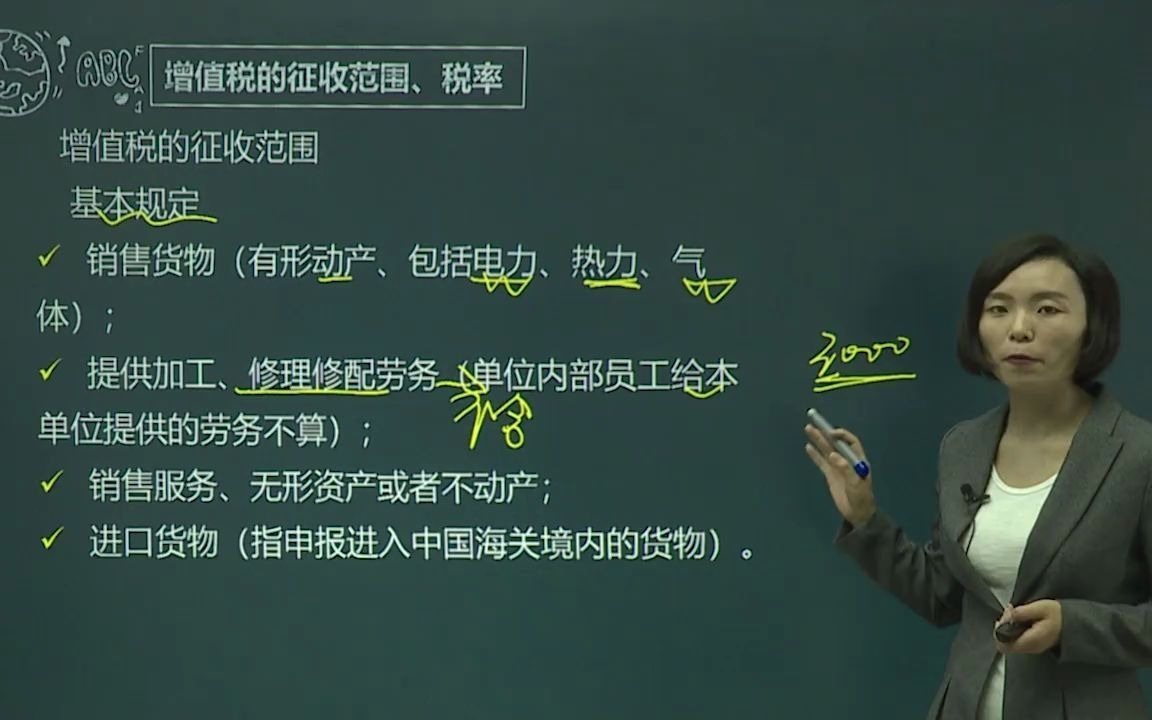 ABC
增值税的征收范围、税率
增值税的征收范围
基本规定
销售货物（有形动产、包括电力、热力、气
体）；
提供加工、修理修配劳务（单位内部员工给本
单位提供的劳务不算）；
不含
2000
销售服务、无形资产或者不动产；
进口货物（指申报进入中国海关境内的货物）。